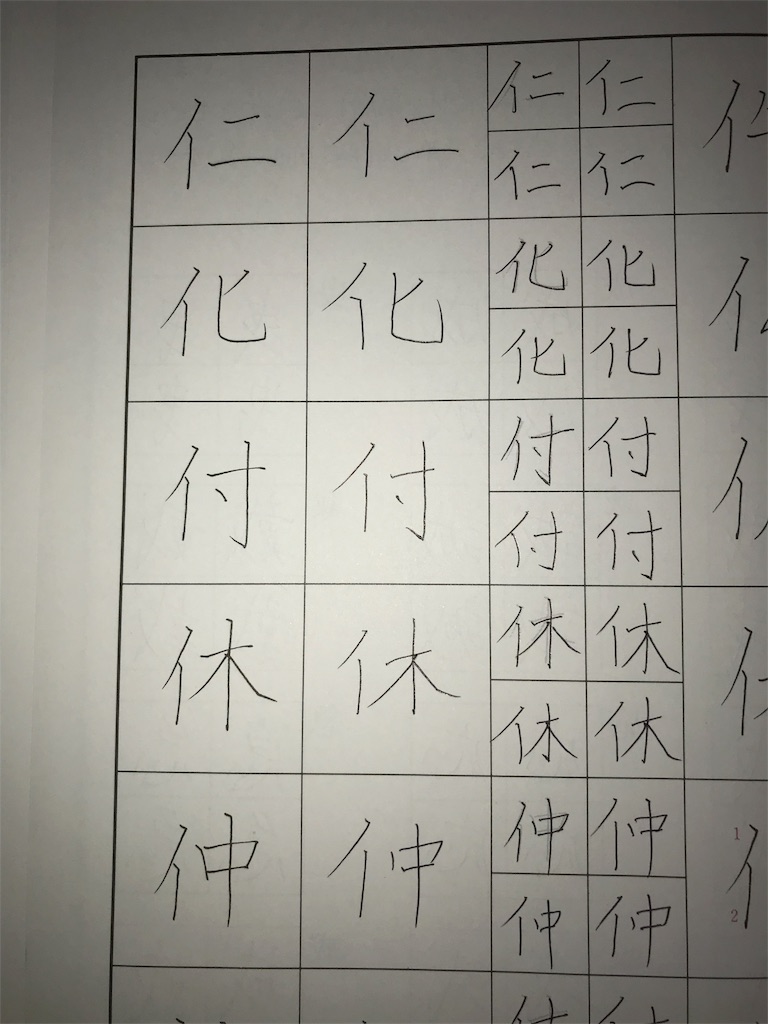 仁 仁 仁 仁
仁 仁
化 化 化 化
化 化
付 付 付 付
付 付
休 休 休 休
休 休
仲 仲 仲 仲
仲 仲
1
2